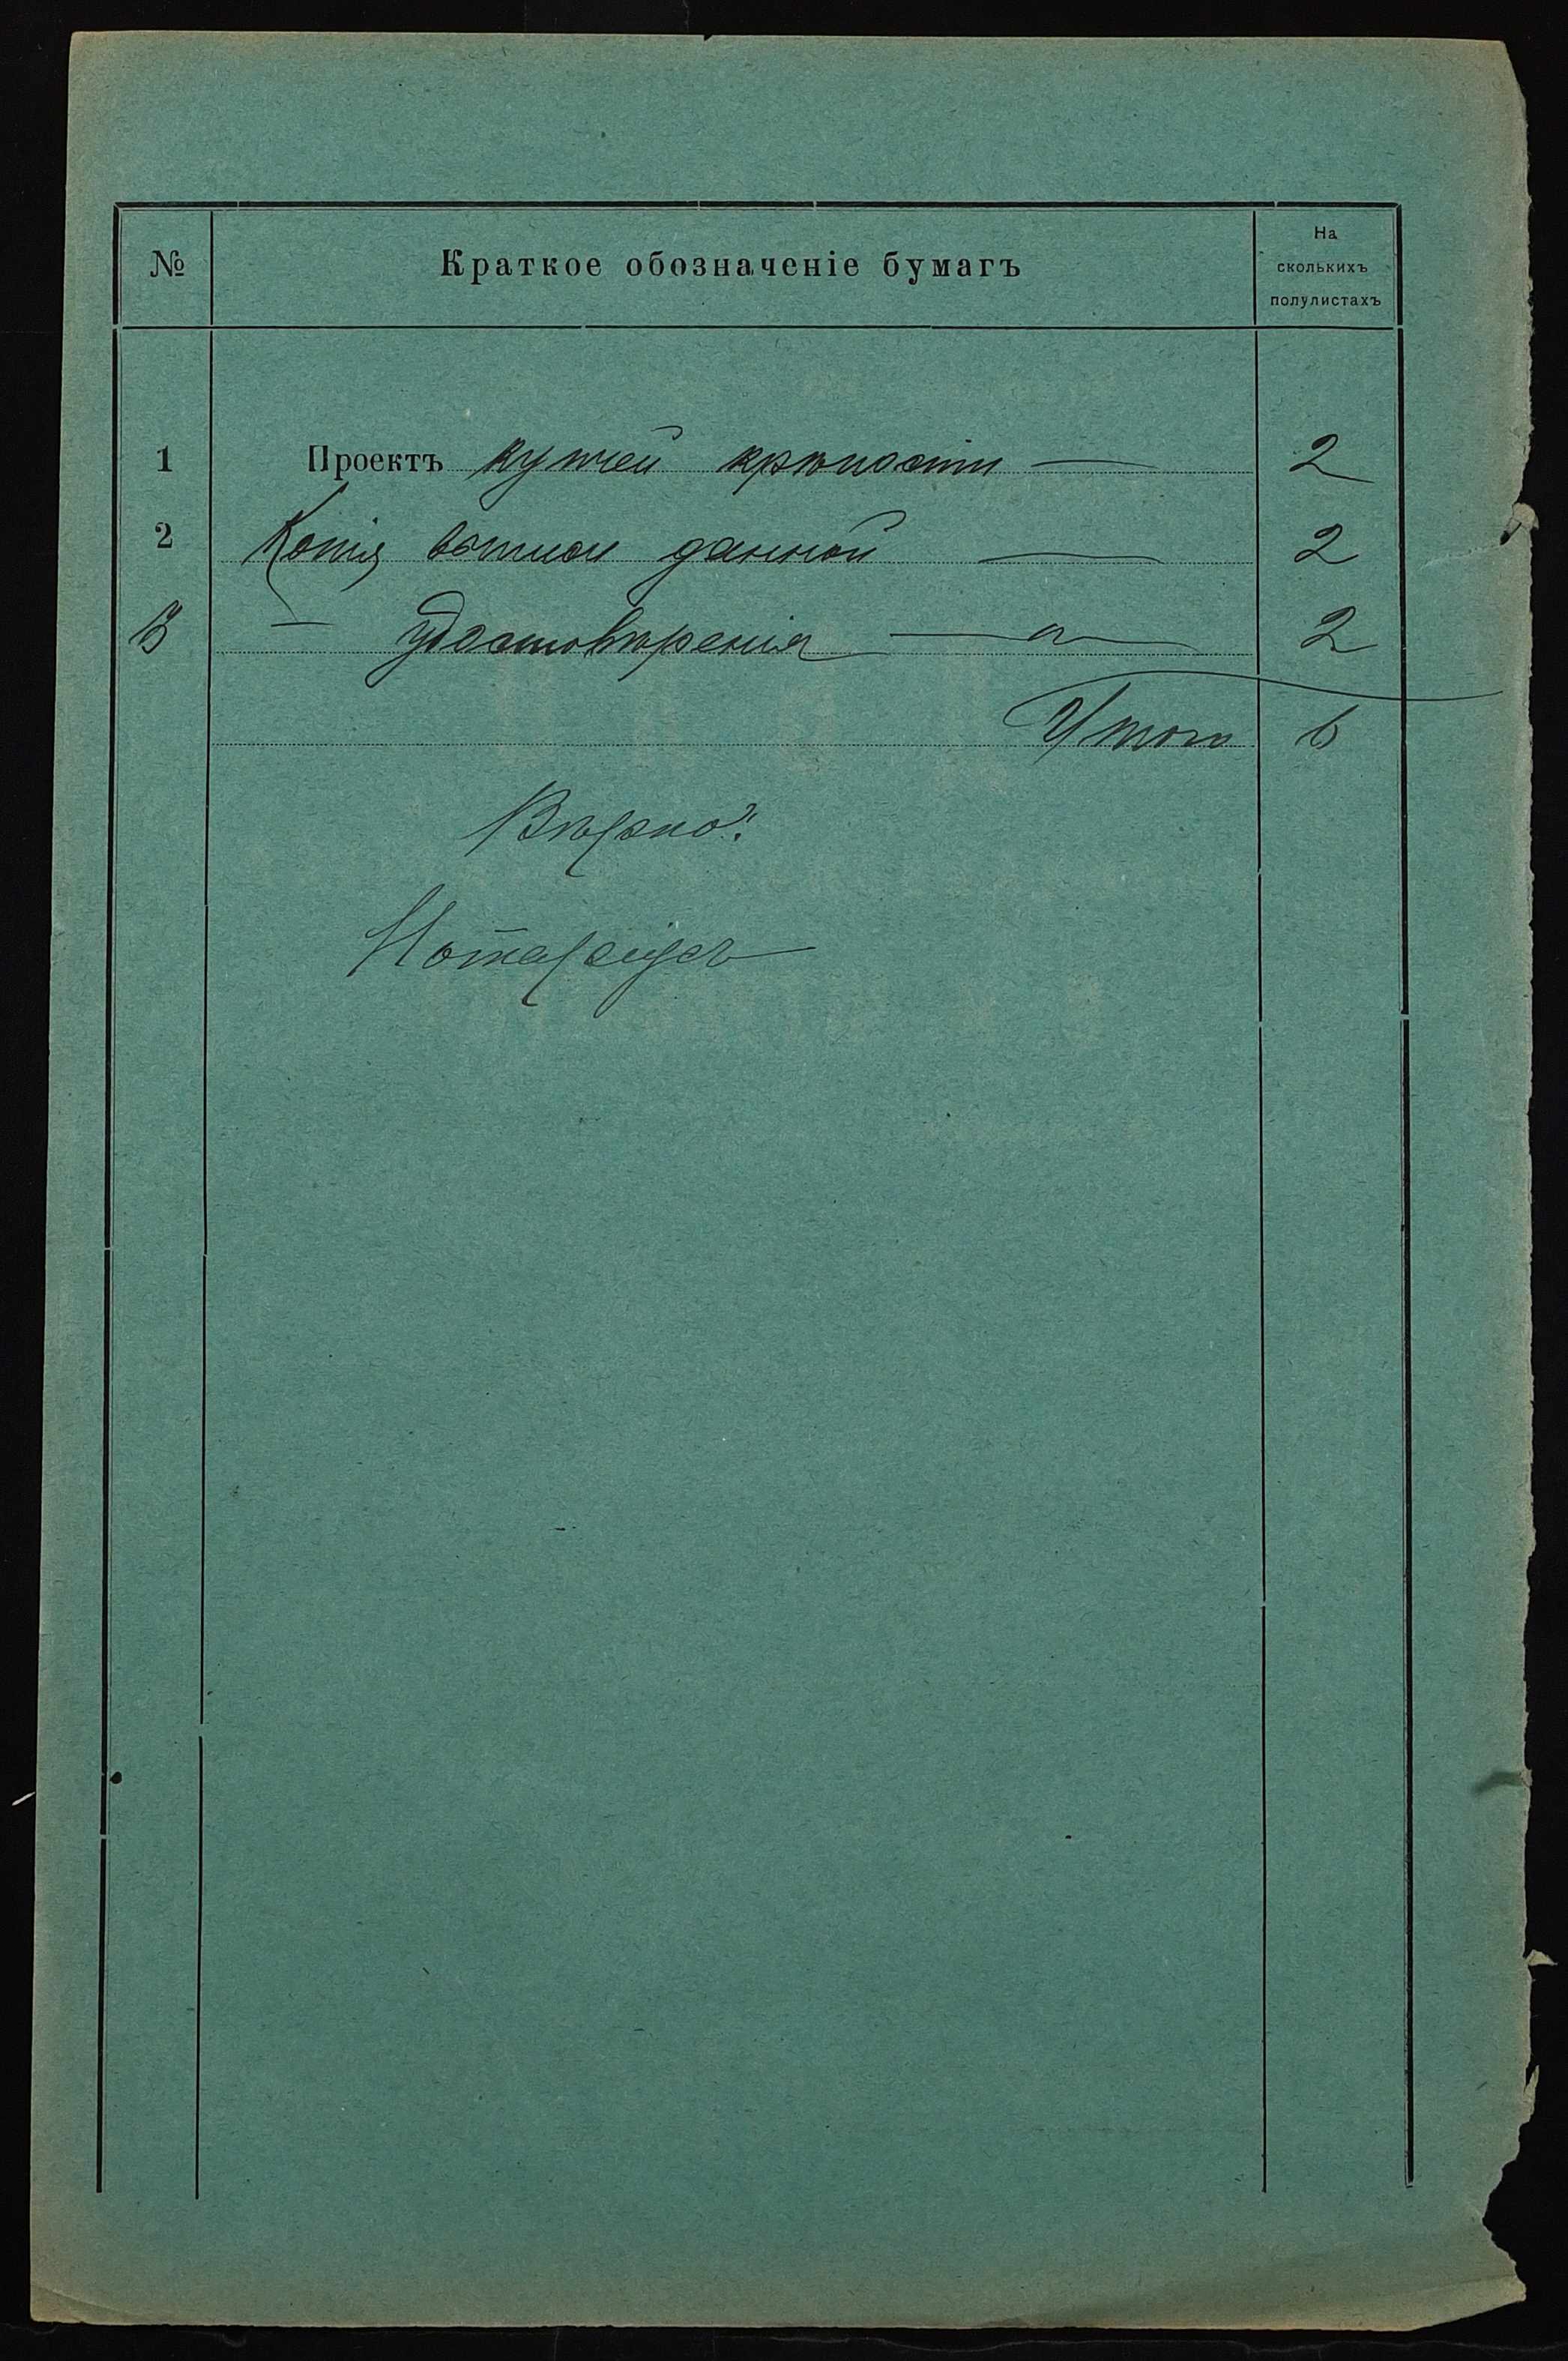 № Краткое обозначеніе бумагъ На
сколькихъ
полулистахъ
1 Проектъ купчей крѣпости — 2
2 Копія данной — 2
3 — удостовѣренія — 2
Итого 6
Вѣрно:
Нотаріусъ